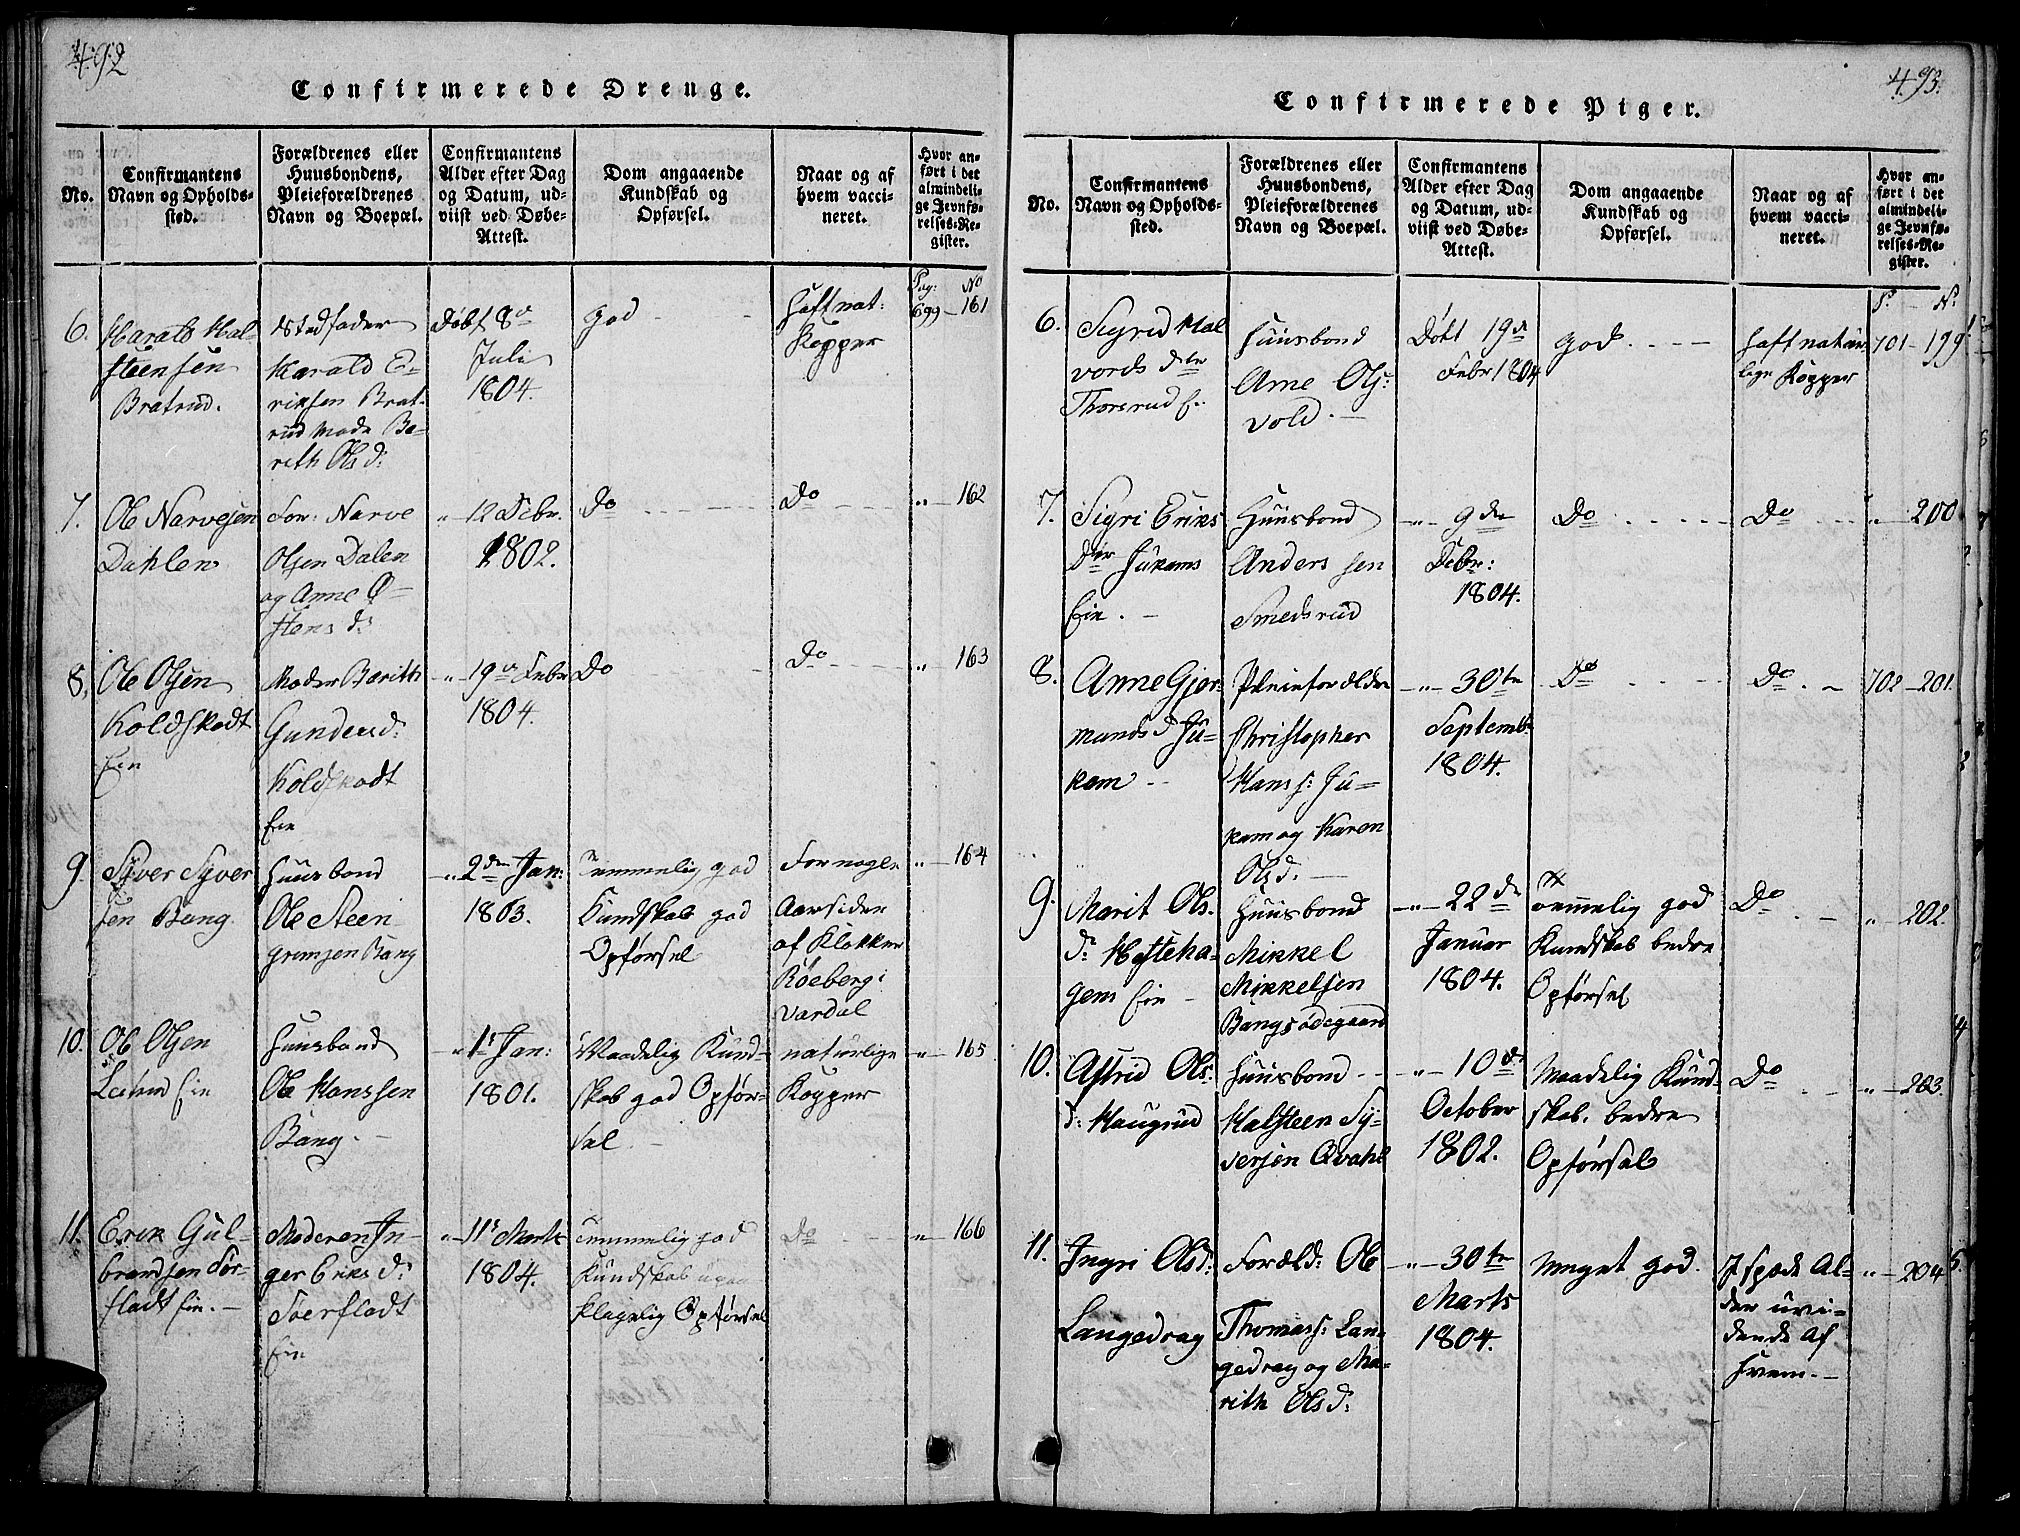 492
Confirmerede Drenge.
No.
Confirmantens
Navn og Opholds-
sted.
Forældrenes eller
Huusbondens,
Pleieforældrenes
Navn og Boepæl.
Confirmantens
Alder efter Dag
og Datum, ud-
viist ved Døbe-
Attest.
Dom angaaende
Kundskab og
Opførsel.
Naar og af
hvem vacci-
neret.
Hvor an-
ført i det
almindeli-
ge Jevnfø-
relses-Re-
gister.
Pag: No
6.
Harald Hal-
steensen
Bratrud.
Stedfader
Harald E-
riksen Brat-
rud Mode Be-
rith Ols d:
Døbt 8de
Juli
1804.
god
Haft nat:
Kopper
699 - 161
7.
Ole Narvesen
Dahlen
For: Narve
Olsen Dalen
og Anne O-
stens d:
" 12 Decbr.
1802.
Do
Do
" 162
8.
Ole Olsen
Koldskodt
Eie
Moder Berith
Gundersd:
Koldskodt
Eie
" 19de Febr
1804.
Do
Do
" 163
9.
Syver Syver
sen Bang.
Huusbond
Ole Steen
grimsen Bang
" 2den Jan:
1803.
Temmelig god
Kundskab god
Opførsel
For nogle
Aar siden
af Klokker
Røeberg i
Vardal
" 164
10.
Ole Olsen
Eie
Huusbond
Ole Hanssen
Bang.
" 1ste Jan:
1801.
Maadelig Kund-
skab god Opfør-
sel
naturlige
Kopper
" 165
11.
Erik Gul-
brandsen Tor-
fladt Eie.
Moderen In-
ger Eriks d:
Torfladt
Eie
" 11te Marts
1804.
temmelig god
Kundskab upaa
klagelig Opførsel
Do
" 166
493.
Confirmerede Piger.
No.
Confirmantens
Navn og Opholds-
sted.
Forældrenes eller
Huusbondens,
Pleieforældrenes
Navn og Boepæl.
Confirmantens
Alder efter Dag
og Datum, ud-
viist ved Døbe-
Attest.
Dom angaaende
Kundskab og
Opførsel.
Naar og af
hvem vacci-
neret.
Hvor an-
ført i det
almindeli-
ge Jevnfø-
relses-Re-
gister.
P. No
6.
Sigrid Hal
vords dtr
Thorsrud E:
Huusbond
Arne Ols:
Vold.
Døbt 19de
Febr 1804
god.
Haft natur
lige Kopper
701 - 199
7.
Sigri Eriks
dtr Jukams
Eie.
Huusbond
Anders sen
Smedsrud
" 9de
Decbr:
1804.
Do
Do
" 200
8.
Anne Gjer-
munds d Ju-
kam
Pleieforældre
Christopher
Hans s: Ju-
kam og Karen
Ols d.
" 30te
Septembr
1804.
Do
Do
702 - 201.
9.
Marit Ols.
d: Hesteha-
gens Eie
Huusbond
Mikkel
Mikkelsen
Bangsødegaard
" 22de
Januar
1804.
Temmelig god
Kundskab bedre
Opførsel
Do
" 202.
10.
Astrid Ols.
d: Haugrud
Huusbond
Halsteen Sy-
versen Qvahl
" 10de
October
1802.
Maadelig Kund-
skab. bedre
Opførsel
Do
" 203.
11.
Ingri Olsd:
Langedrag
Foræld: Ole
Thomass: Lan-
gedrag og Ma-
rith Ols d:
" 30te
Marts
1804.
Meget god.
I spæde Al-
der uvi-
dende af
hvem.
" 204